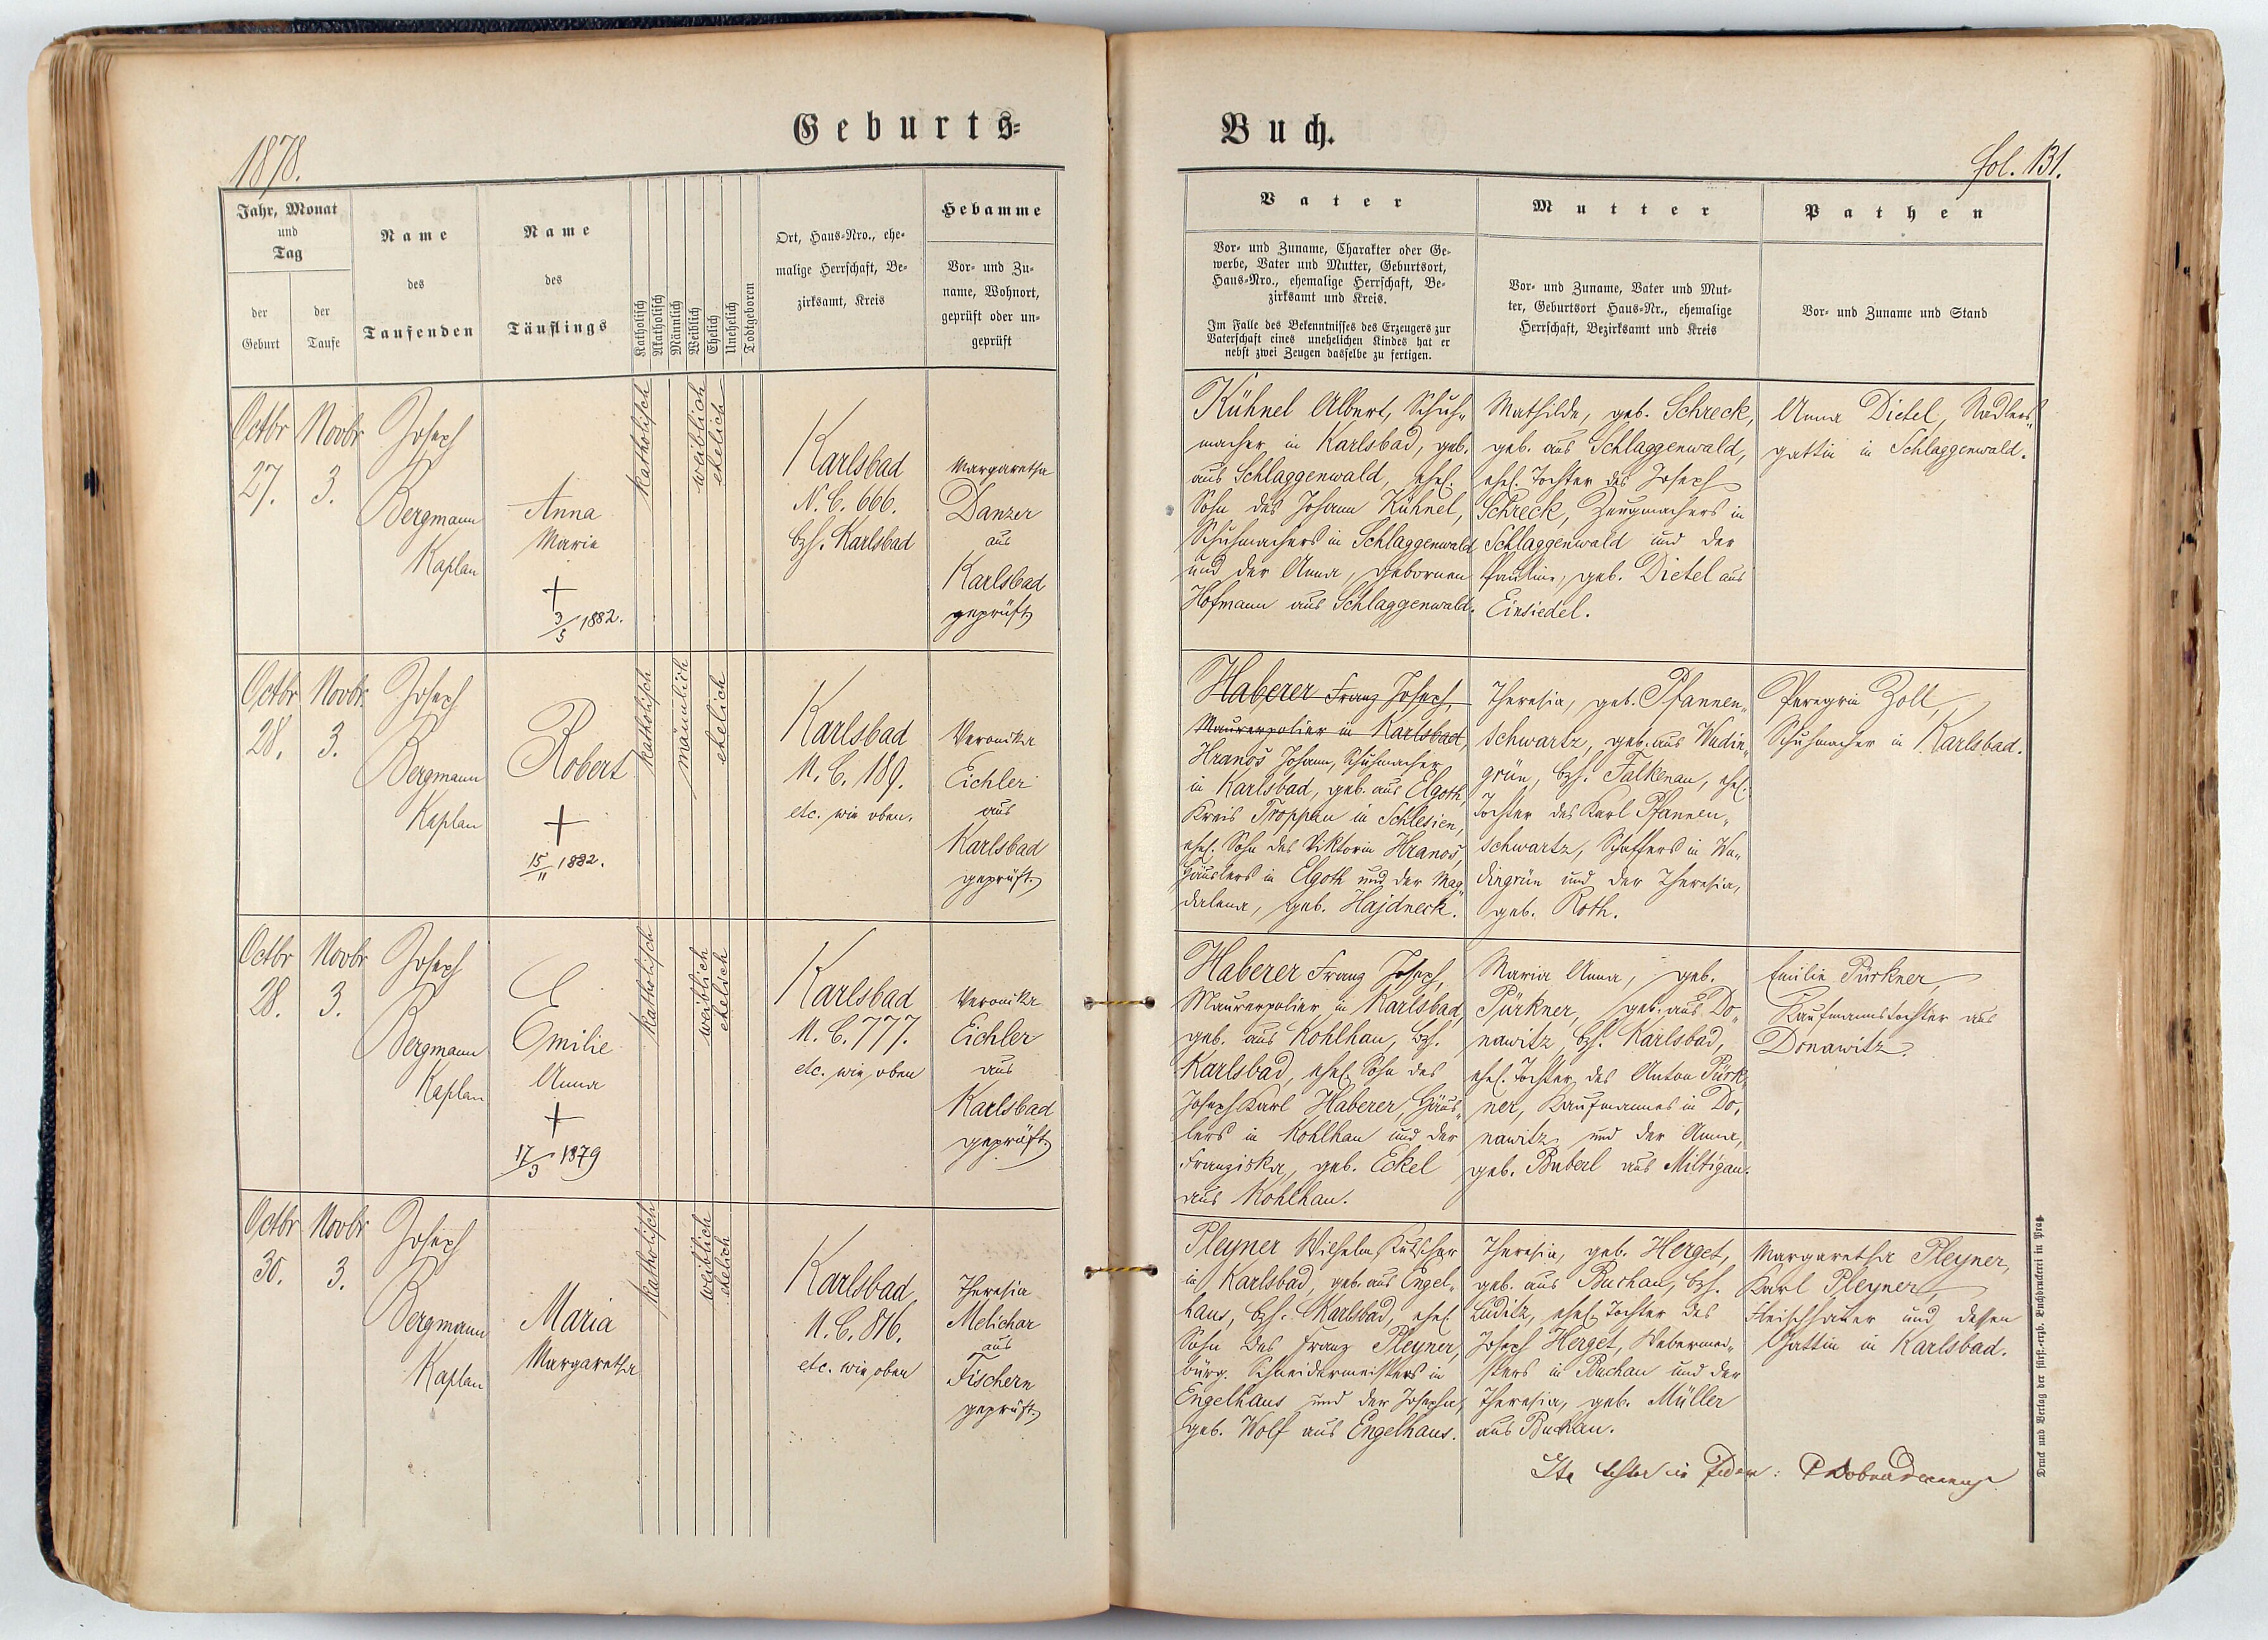 Geburts-
Buch.
1878.
fol. 131.
Jahr, Monat
und
Tag
der
Geburt
der
Taufe
Name
des
Taufenden
Name
des
Täuflings
Katholisch
Akatholisch
Männlich
Weiblich
Ehelich
Unehelich
Todtgeboren
Ort, Haus-Nro., ehe-
malige Herrschaft, Be-
zirksamt, Kreis
Hebamme
Vor- und Zu-
name, Wohnort,
geprüft oder un-
geprüft
Vater
Vor- und Zuname, Charakter oder Ge-
werbe, Vater und Mutter, Geburtsort,
Haus-Nro., ehemalige Herrschaft, Be-
zirksamt und Kreis.
Im Falle des Bekenntnisses des Erzeugers zur
Vaterschaft eines unehelichen Kindes hat er
nebst zwei Zeugen dasselbe zu fertigen.
Mutter
Vor- und Zuname, Vater und Mut-
ter, Geburtsort Haus-Nr., ehemalige
Herrschaft, Bezirksamt und Kreis
Pathen
Vor- und Zuname und Stand
Octbr
27.
Novbr
3.
Joseph
Bergmann
Kaplan
Anna
Marie
+
3/5 1882.
katholisch
weiblich
ehelich
Karlsbad
N. C. 666.
bzh. Karlsbad
Margaretha
Danzer
aus
Karlsbad
geprüft
Kühnel Albert, Schuh-
macher in Karlsbad, geb.
aus Schlaggenwald, ehel.
Sohn des Johann Kühnel,
Schuhmachers in Schlaggenwald
und der Anna, gebornen
Hofmann aus Schlaggenwald.
Mathilde, geb. Schreck,
geb. aus Schlaggenwald,
ehel. Tochter des Joseph
Schreck, Zeugmachers in
Schlaggenwald und der
Pauline, geb. Dietel aus
Einsiedel.
Anna Dietel, Nadlers-
gattin in Schlaggenwald.
Octbr
28.
Novbr.
3.
Joseph
Bergmann
Kaplan
Robert
+
15/11 1882.
katholisch
männlich
ehelich
Karlsbad
N. C. 189.
etc. wie oben.
Veronika
Eichler
aus
Karlsbad
geprüft.
Haberer Franz Joseph,
Maurerpolier in Karlsbad,
Hranos Johann, Schuhmacher
in Karlsbad, geb. aus Elgoth,
Kreis Troppau in Schlesien,
ehel. Sohn des Viktorin Hranos,
Häuslers in Elgoth und der Mag-
dalena, geb. Hajdneck.
Theresia, geb. Pfannen-
schwartz, geb. aus Wudin-
grün, bzh. Falkenau, ehel.
Tochter des Karl Pfannen-
schwartz, Schaffers in Wu-
dingrün und der Theresia,
geb. Roth.
Peregrin Zoll,
Schuhmacher in Karlsbad.
Octbr
28.
Novbr
3.
Joseph
Bergmann
Kaplan
Emilie
Anna
+
17/3 1879
katholisch
weiblich
ehelich
Karlsbad
N. C. 777.
etc. wie oben
Veronika
Eichler
aus
Karlsbad
geprüft.
Haberer Franz Joseph,
Maurerpolier in Karlsbad,
geb. aus Kohlhau, bzh.
Karlsbad, ehel. Sohn des
Joseph Karl Haberer, Häus-
lers in Kohlhau und der
Franziska, geb. Eckel
aus Kohlhau.
Maria Anna, geb.
Pürkner, geb. aus Do-
nawitz, bzh. Karlsbad,
ehel. Tochter des Anton Pürk-
ner, Kaufmannes in Do-
nawitz und der Anna,
geb. Buberl aus Miltigau.
Emilie Pürkner,
Kaufmannstochter aus
Donawitz.
Octbr
30.
Novbr
3.
Joseph
Bergmann
Kaplan
Maria
Margaretha
katholisch
weiblich
ehelich
Karlsbad
N. C. 816.
etc. wie oben
Theresia
Melichar
aus
Fischern
geprüft.
Pleyner Wilhelm Kutscher
in Karlsbad, geb. aus Engel-
haus, bzh. Karlsbad, ehel.
Sohn des Franz Pleyner,
bürg. Schneidermeisters in
Engelhaus und der Josepha,
geb. Wolf aus Engelhaus.
Theresia, geb. Herget,
geb. aus Buchau, bzh.
Luditz, ehel. Tochter des
Joseph Herget, Webermei-
sters in Buchau und der
Theresia, geb. Müller
aus Buchau.
Margaretha Pleyner,
Karl Pleyner,
Fleischhauer und dessen
Gattin in Karlsbad.
Druck und Verlag der fürst.-erzb. Buchdruckerei in Prag.